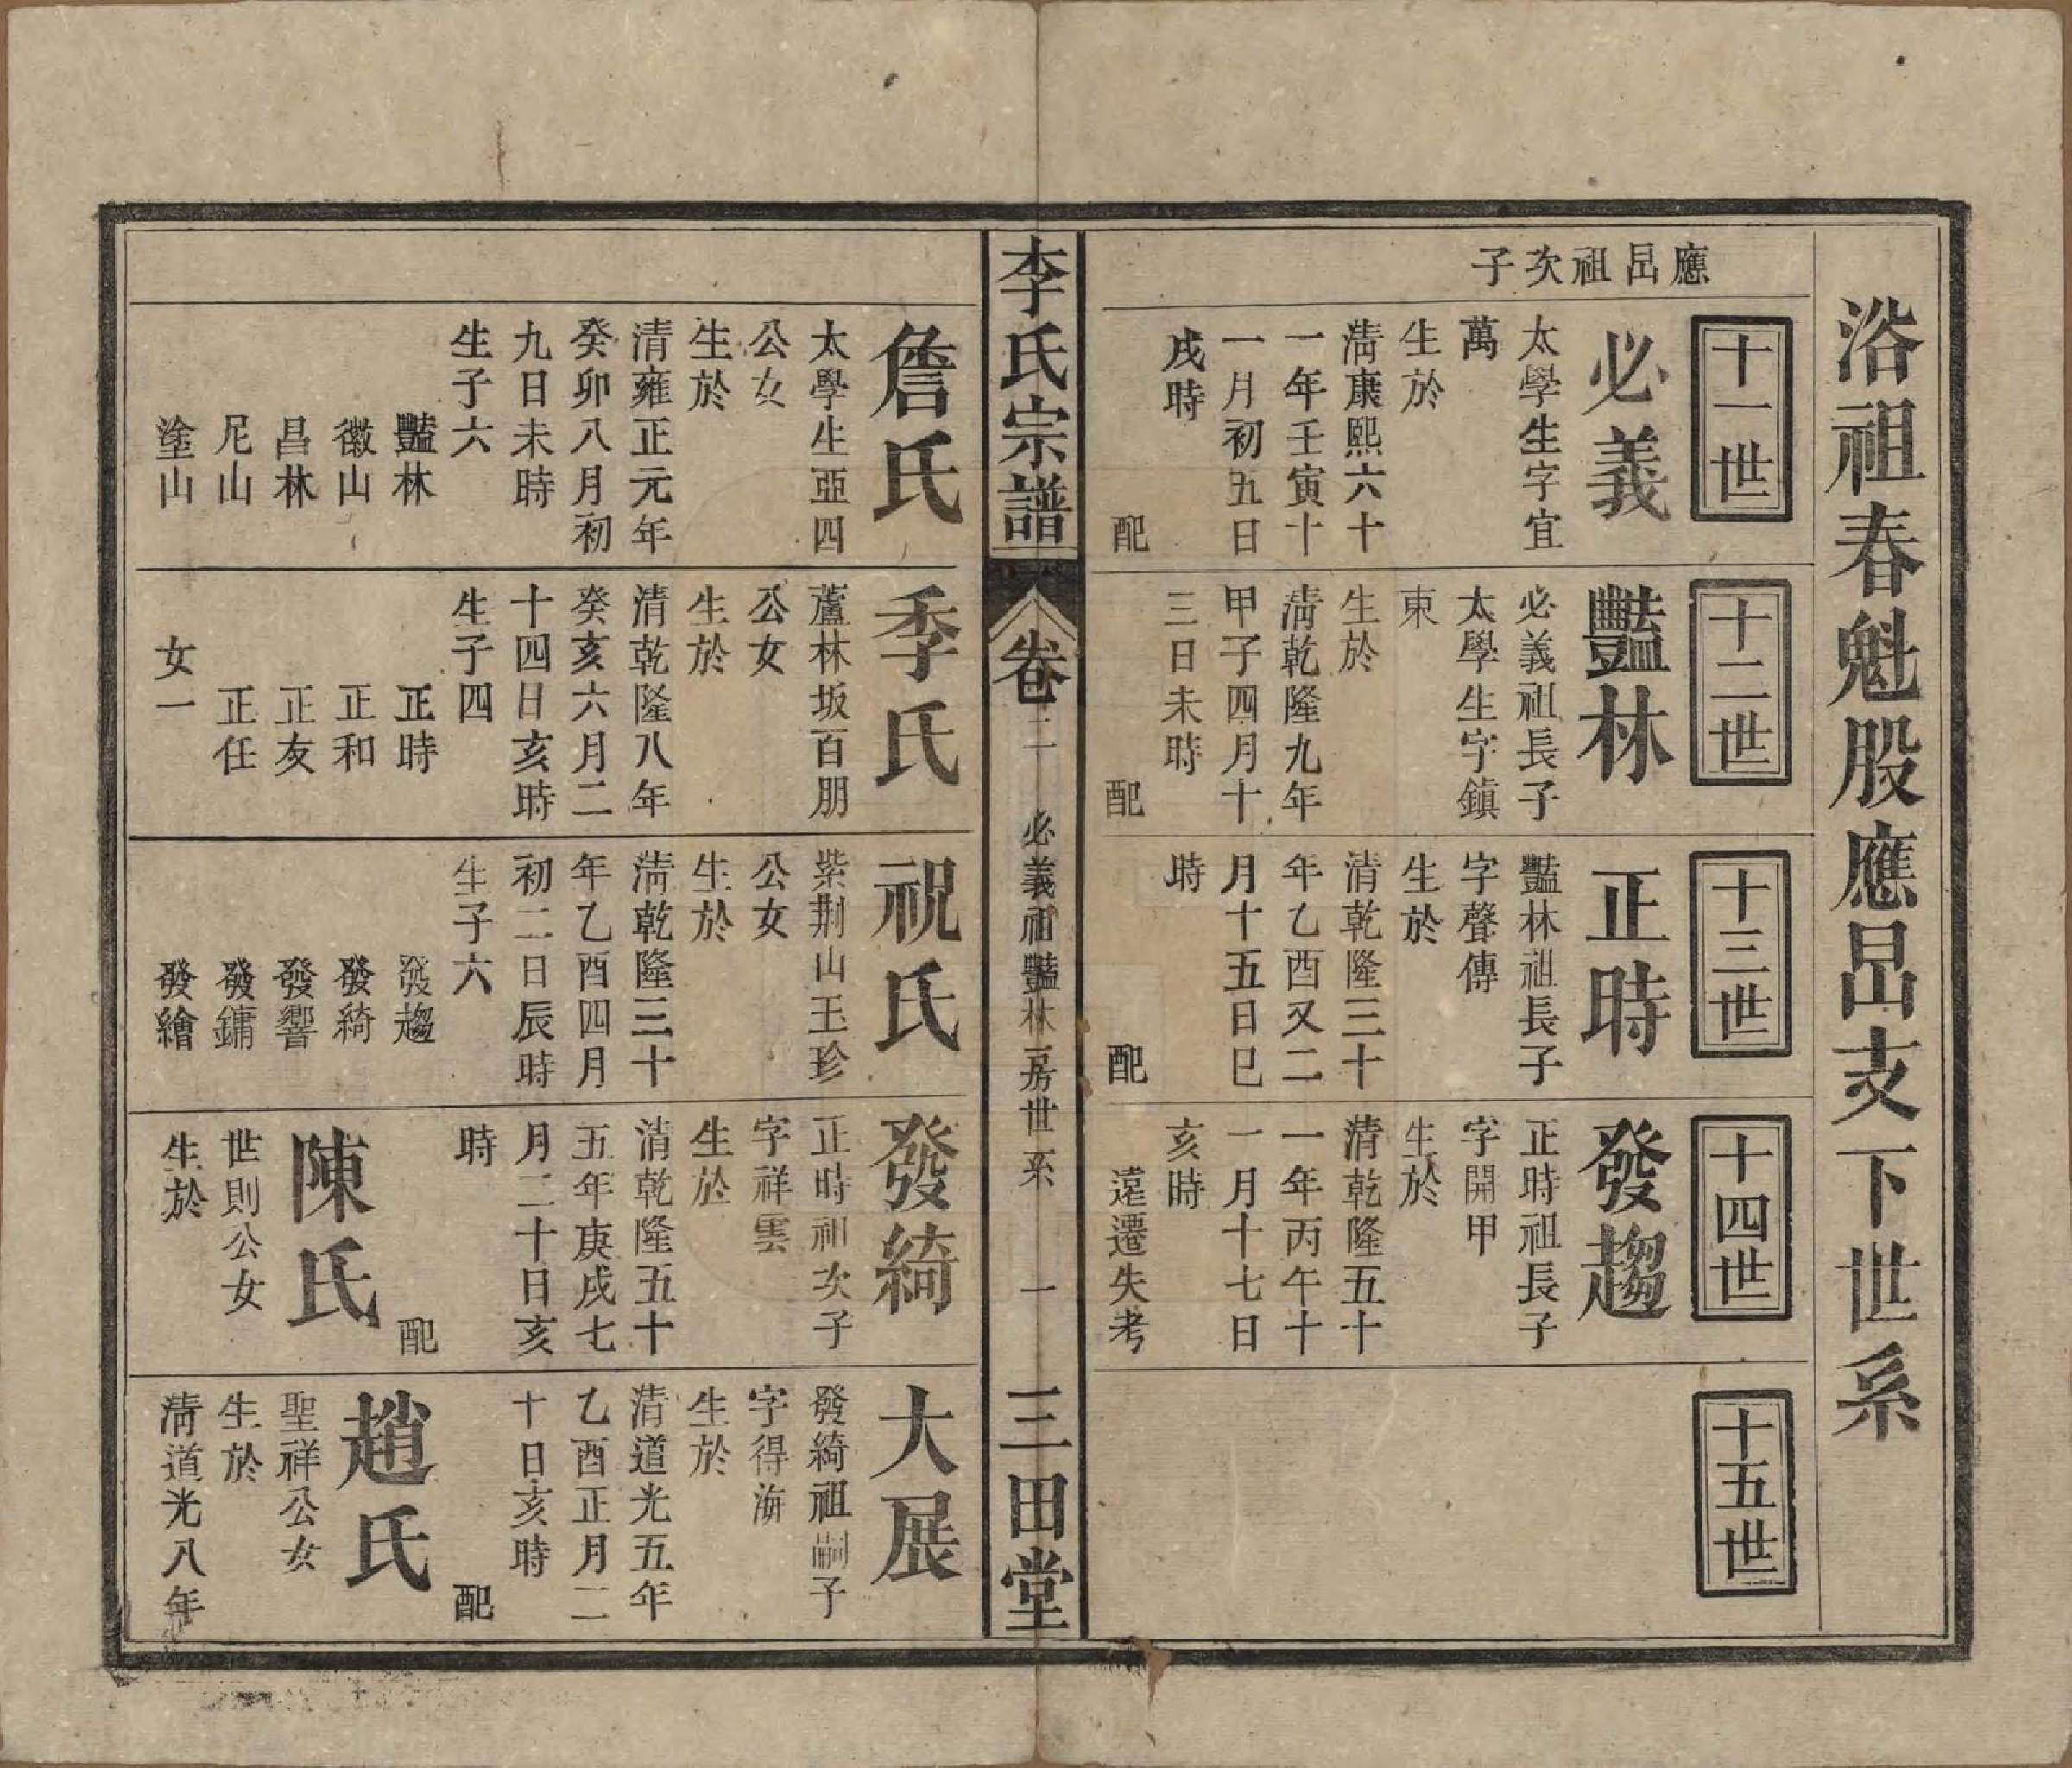 浴祖春魁股應岊支下世系
應岊祖次子
十一世
必義
太學生字宜
萬
生於
淸康熙六十
一年壬寅十
一月初五日
戌時
配
十二世
豔林
必義祖長子
太學生字鎮
東
生於
淸乾隆九年
甲子四月十
三日未時
配
十三世
正時
豔林祖長子
字聲傳
生於
清乾隆三十
年乙酉又二
月十五日巳
時
配
十四世
發趨
正時祖長子
字開甲
生於
清乾隆五十
一年丙午十
一月十七日
亥時
遠遷失考
十五世
李氏宗譜
卷二
必義祖豔林房世系
一
三田堂
詹氏
太學生亞四
公女
生於
清雍正元年
癸卯八月初
九日未時
生子六
豔林
徽山
昌林
尼山
塗山
季氏
蘆林坂百朋
公女
生於
清乾隆八年
癸亥六月二
十四日亥時
生子四
正時
正和
正友
正任
女一
祝氏
紫荆山玉珍
公女
生於
淸乾隆三十
年乙酉四月
初二日辰時
生子六
發趨
發綺
發響
發鏞
發繪
發綺
正時祖次子
字祥雲
生於
清乾隆五十
五年庚戌七
月二十日亥
時
配
陳氏
世則公女
生於
大展
發綺祖嗣子
字得海
生於
清道光五年
乙酉正月二
十日亥時
配
趙氏
聖祥公女
生於
淸道光八年